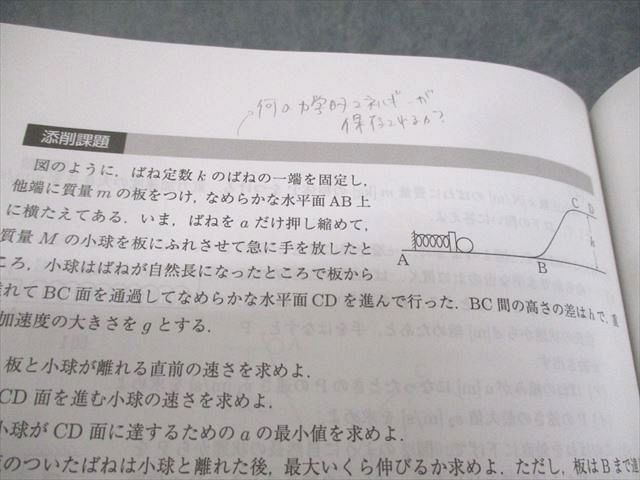 何の力学的エネルギーが
保存されるか?
添削課題
図のように，ばね定数kのばねの一端を固定し，
他端に質量mの板をつけ，なめらかな水平面AB上
に横たえてある．いま，ばねをaだけ押し縮めて，
質量Mの小球を板にふれさせて急に手を放したと
ころ，小球はばねが自然長になったところで板から
れてBC面を通過してなめらかな水平面CDを進んで行った．BC間の高さの差はhで，重
加速度の大きさをgとする．
板と小球が離れる直前の速さを求めよ．
CD面を進む小球の速さを求めよ．
小球がCD面に達するためのaの最小値を求めよ．
のついたばねは小球と離れた後，最大いくら伸びるか求めよ．ただし，板はBまで達
A
B
C
D
h